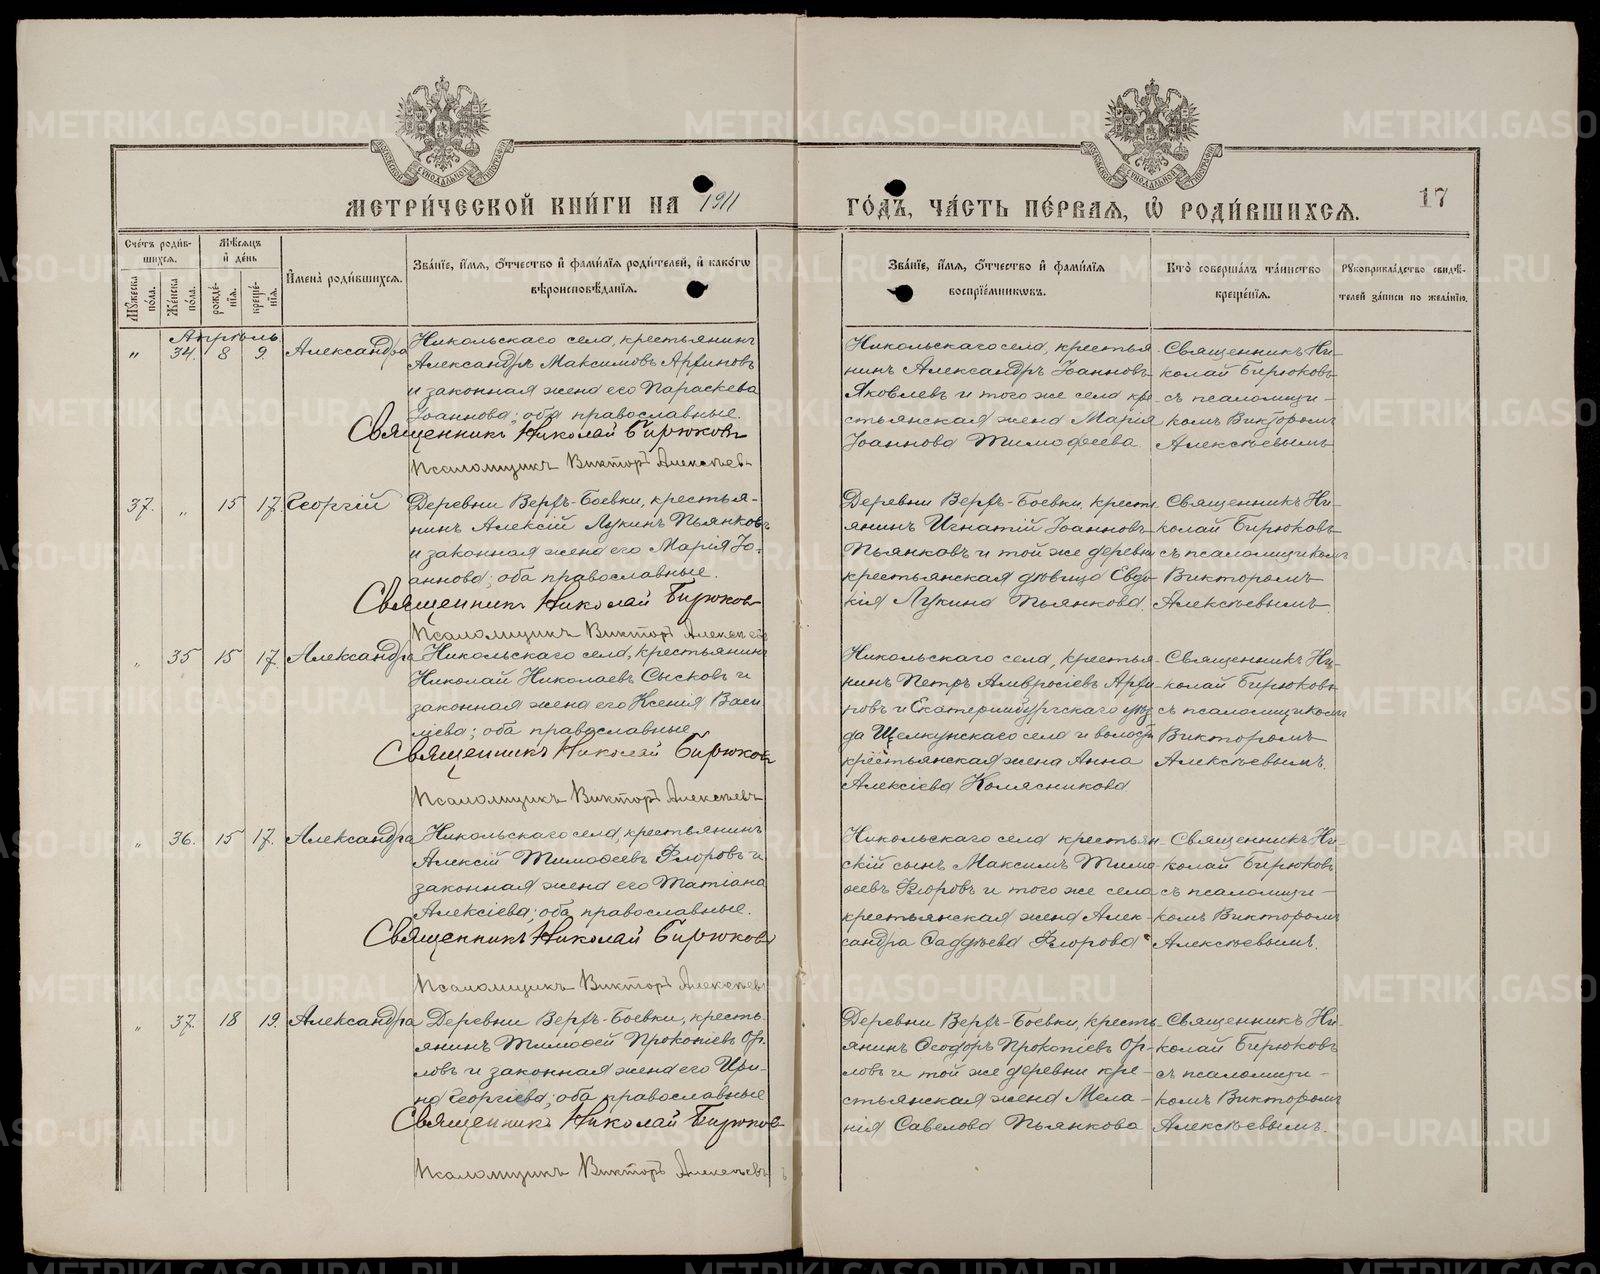 МЕТРИ́ЧЕСКОЙ КНИ́ГИ НА 1911 ГО́ДЪ, ЧА́СТЬ ПЕ́РВАЯ, Ѡ҆ РОДИ́ВШИХСЯ.
17
Сче́тъ роди́в-
шихся.
Му́жеска по́ла.
Же́нска по́ла.
Мѣ́сяцъ
и҆ де́нь
рожде́-
нія.
креще́-
нія.
И҆мена̀ роди́вшихся.
Зва́ніе, и҆́мя, ѻ҆́тчество и҆ фами́лія роди́телей, и҆ како́гѡ
вѣроисповѣ́данія.
Зва́ніе, и҆́мя, ѻ҆́тчество и҆ фами́лія
воспріе́мниковъ.
Кто̀ соверша́лъ та́инство
креще́нія.
Рукоприкла́дство свидѣ́-
телей за́писи по жела́нію.
Апрѣль
" 34. 8 9. Александра
Никольскаго села, крестьянинъ
Александръ Максимовъ Арфиновъ
и законная жена его Параскева
Іоаннова; оба православные.
Священникъ Николай Бирюковъ
Псаломщикъ Викторъ Алексѣевъ
Никольскаго села, крестья-
нинъ Александръ Іоанновъ
Яковлевъ и того же села кре-
стьянская жена Марія
Іоаннова Тимоѳеева.
Священникъ Ни-
колай Бирюковъ
съ псаломщи-
комъ Викторомъ
Алексѣевымъ
37. " 15 17. Георгій
Деревни Верхъ-Боевки, крестья-
нинъ Алексій Лукинъ Пьянковъ
и законная жена его Марія Іо-
аннова; оба православные.
Священникъ Николай Бирюковъ
Псаломщикъ Викторъ Алексѣевъ
Деревни Верхъ-Боевки, кресть-
янинъ Игнатій Іоанновъ
Пьянковъ и той же деревни
крестьянская дѣвица Евдо-
кія Лукина Пьянкова.
Священникъ Ни-
колай Бирюковъ
съ псаломщикомъ
Викторомъ
Алексѣевымъ.
" 35 15 17. Александра
Никольскаго села, крестьянинъ
Николай Николаевъ Сысковъ и
законная жена его Ксенія Васи-
ліева; оба православные
Священникъ Николай Бирюковъ
Псаломщикъ Викторъ Алексѣевъ
Никольскаго села, крестья-
нинъ Петръ Амвросіевъ Арфи-
новъ и Екатеринбургскаго уѣз-
да Щелкунскаго села и волости
крестьянская жена Анна
Алексіева Колясникова
Священникъ Ни-
колай Бирюковъ
съ псаломщикомъ
Викторомъ
Алексѣевымъ.
" 36. 15 17. Александра
Никольскаго села, крестьянинъ
Алексій Тимоѳеевъ Флоровъ и
законная жена его Татіана
Алексіева; оба православные.
Священникъ Николай Бирюковъ
Псаломщикъ Викторъ Алексѣевъ
Никольскаго села крестьян-
скій сынъ Максимъ Тимо-
ѳеевъ Флоровъ и того же села
крестьянская жена Алек-
сандра Фаддѣева Флорова
Священникъ Ни-
колай Бирюковъ
съ псаломщи-
комъ Викторомъ
Алексѣевымъ.
" 37. 18 19. Александра
Деревни Верхъ-Боевки, кресть-
янинъ Тимоѳей Прокопіевъ Ор-
ловъ и законная жена его Ири-
на Георгіева; оба православные
Священникъ Николай Бирюковъ
Псаломщикъ Викторъ Алексѣевъ
Деревни Верхъ-Боевки, кресть-
янинъ Ѳеодоръ Прокопіевъ Ор-
ловъ и той же деревни кре-
стьянская жена Мела-
нія Савелова Пьянкова
Священникъ Ни-
колай Бирюковъ
съ псаломщи-
комъ Викторомъ
Алексѣевымъ.
METRIKI.GASO-URAL.RU